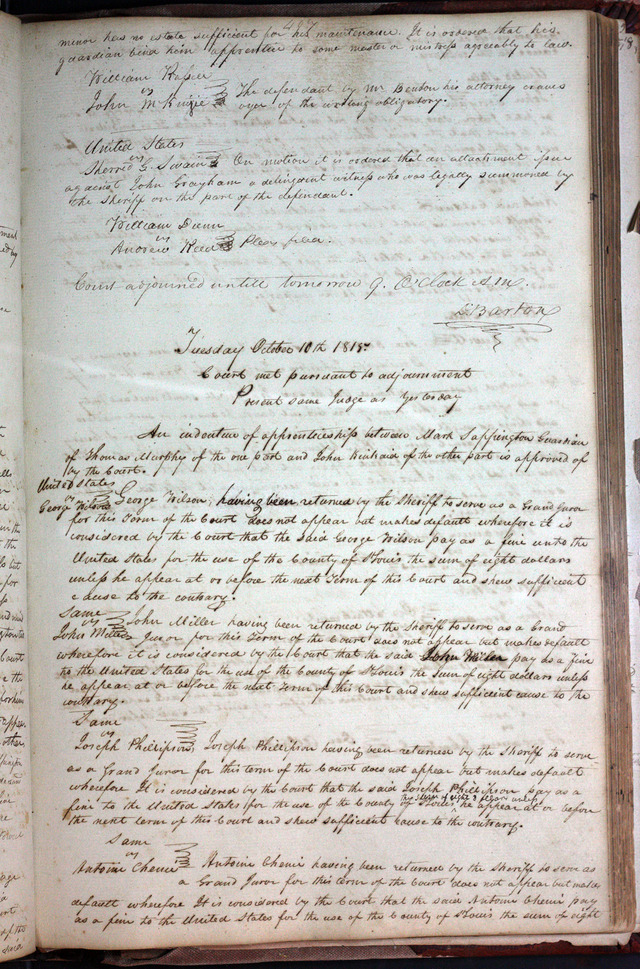 minor has no estate sufficient for his maintenance. It is ordered that his
guardian bind him apprentice to some master or mistress agreeably to law.
William
vs
John McKnight The defendant by Mr Benton his attorney craves
oyer of the writing obligatory.
United States
vs
Sherrod G. Swain On motion it is ordered that an attachment issue
against John Grayham a delinquent witness who was legally summoned by
the Sheriff on the part of the defendant.
William Dunn
vs
Andrew Reed Pleas filed.
Court adjourned untill tomorrow 9. O'Clock A.M.
D Barton
Tuesday October 10th 1815.
Court met pursuant to adjournment
Present same Judge as yesterday
An indenture of apprenticeship between Mark Sappington Guardian
of Thomas Murphy of the one part and John of the other part is approved of
by the Court.
United States
vs
George Wilson George Wilson, having been returned by the Sheriff to serve as a Grand Juror
for this Term of the Court does not appear but makes default wherefore it is
considered by the Court that the said George Wilson pay as a fine unto the
United States for the use of the County of St Louis the sum of eight dollars
unless he appear at or before the next Term of this Court and shew sufficient
cause to the contrary.
Same
vs John Miller having been returned by the Sheriff to serve as a Grand
John Miller Juror for this Term of the Court does not appear but makes default
wherefore it is considered by the Court that the said John Miller pay as a fine
to the United States for the use of the County of St Louis the sum of eight dollars unless
he appear at or before the next Term of this Court and shew sufficient cause to the
contrary.
Same
vs
Joseph Phillipson, Joseph Phillipson having been returned by the Sheriff to serve
as a Grand Juror for this term of the Court does not appear but makes default
wherefore It is considered by the Court that the said Joseph Phillipson pay as a
fine to the United States for the use of the County of St Louis the sum of eight dollars unless he appear at or before
the next term of this Court and shew sufficient cause to the contrary.
Same
vs
Antoine Chenie Antoine Chenie having been returned by the Sheriff to serve as
a Grand Juror for this term of the Court does not appear but makes
default wherefore It is considered by the Court that the said Antoine Chenie pay
as a fine to the United States for the use of the County of St Louis the sum of eight